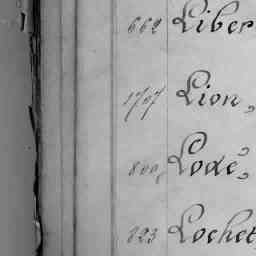 662 Liber
1707 Lion,
800, Lodé,
823 Lochet